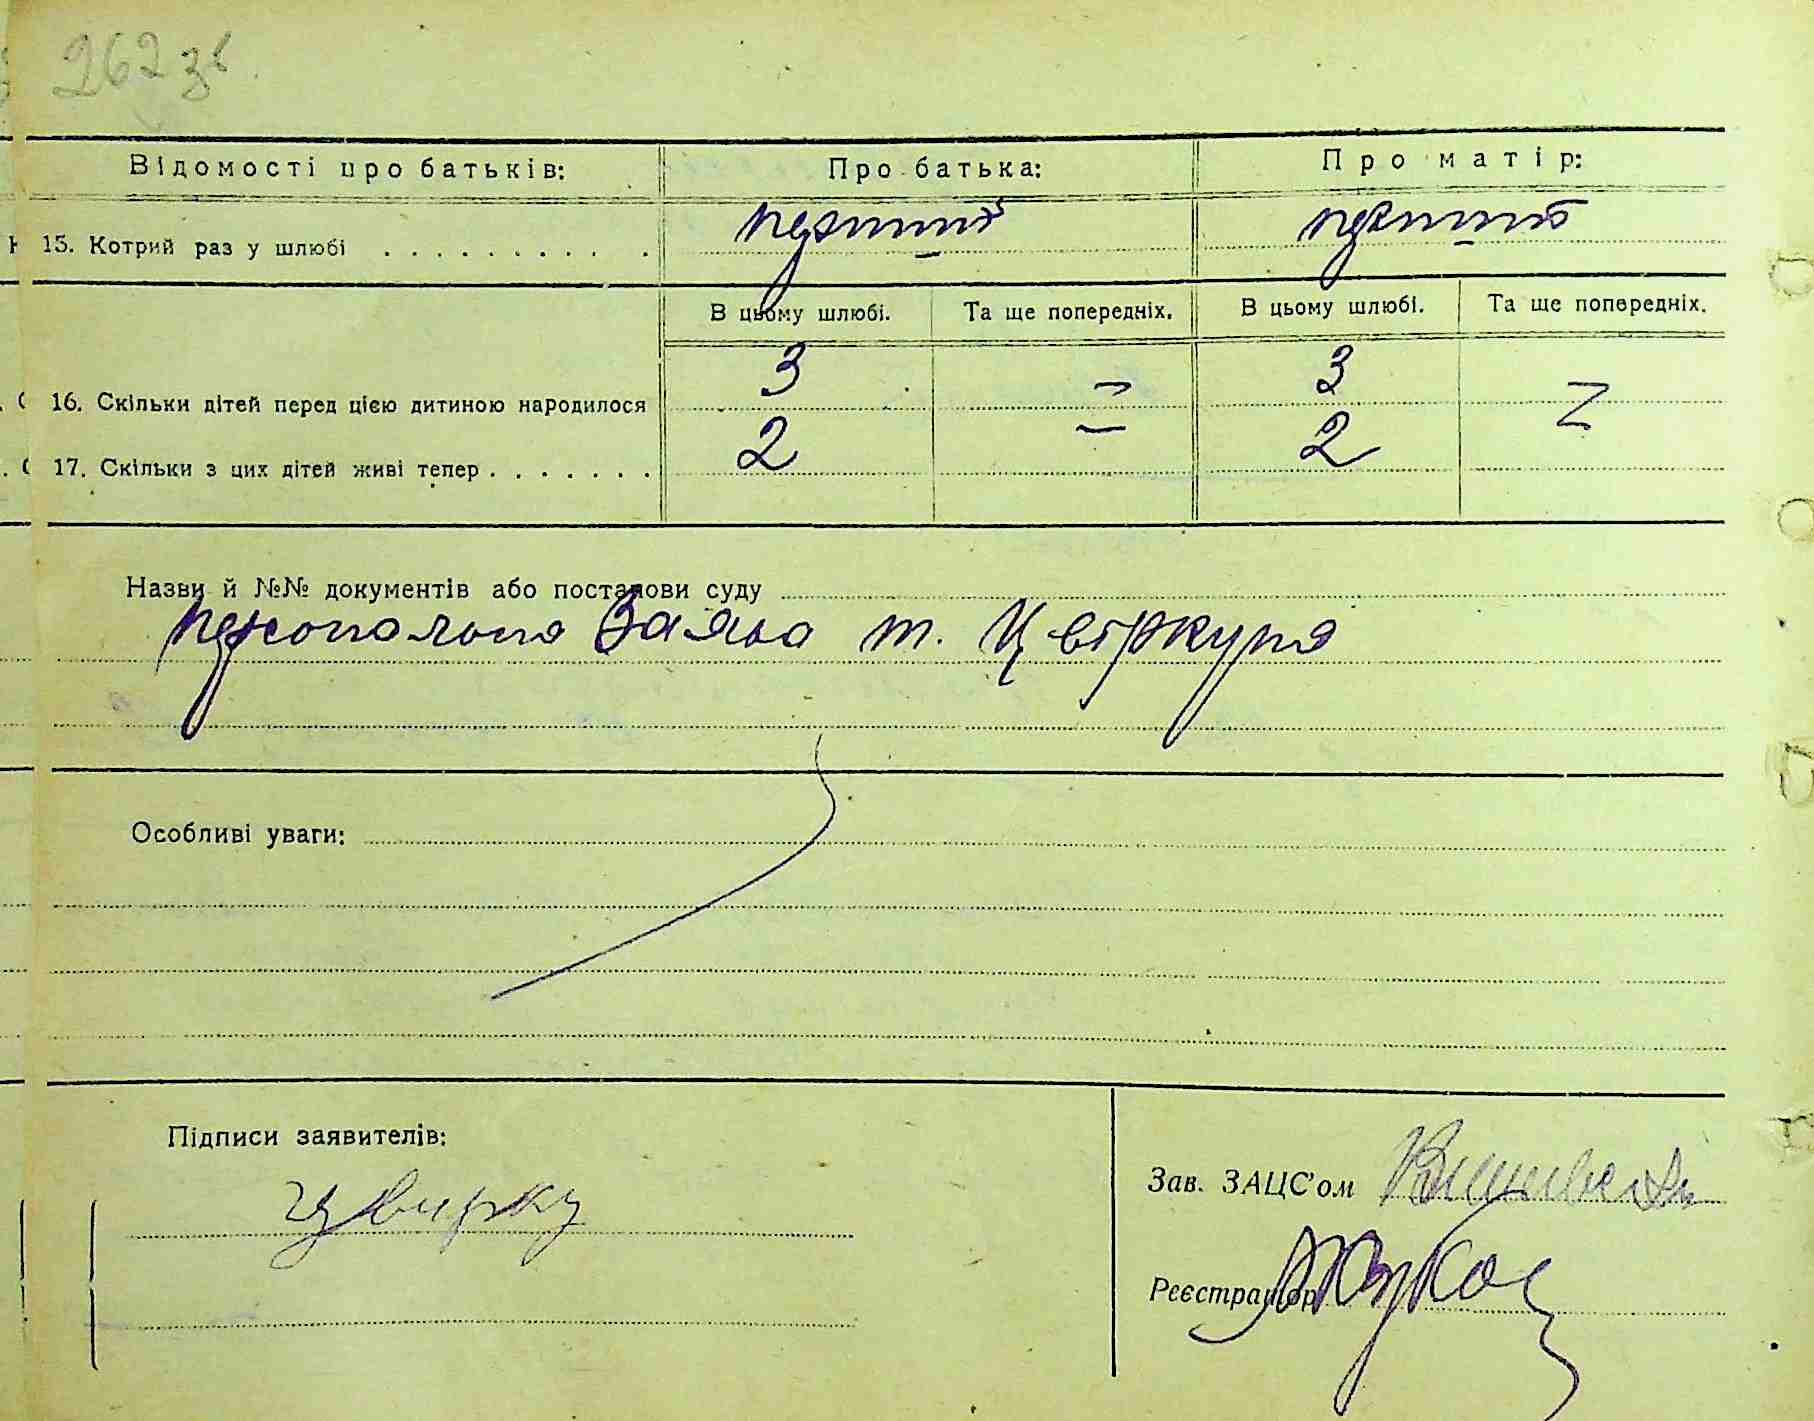 262 зв.
Відомості про батьків: Про батька: Про матір:
15. Котрий раз у шлюбі . . . . . . . . . . перший перший
В цьому шлюбі. Та ще попередніх. В цьому шлюбі. Та ще попередніх.
16. Скільки дітей перед цією дитиною народилося 3 – 3 –
17. Скільки з цих дітей живі тепер . . . . . . . 2 – 2
Назви й №№ документів або постанови суду
персональна Заява т. Цвіркуна
Особливі уваги:
Підписи заявителів:
Цвирку
Зав. ЗАЦС'ом
Реєстратор